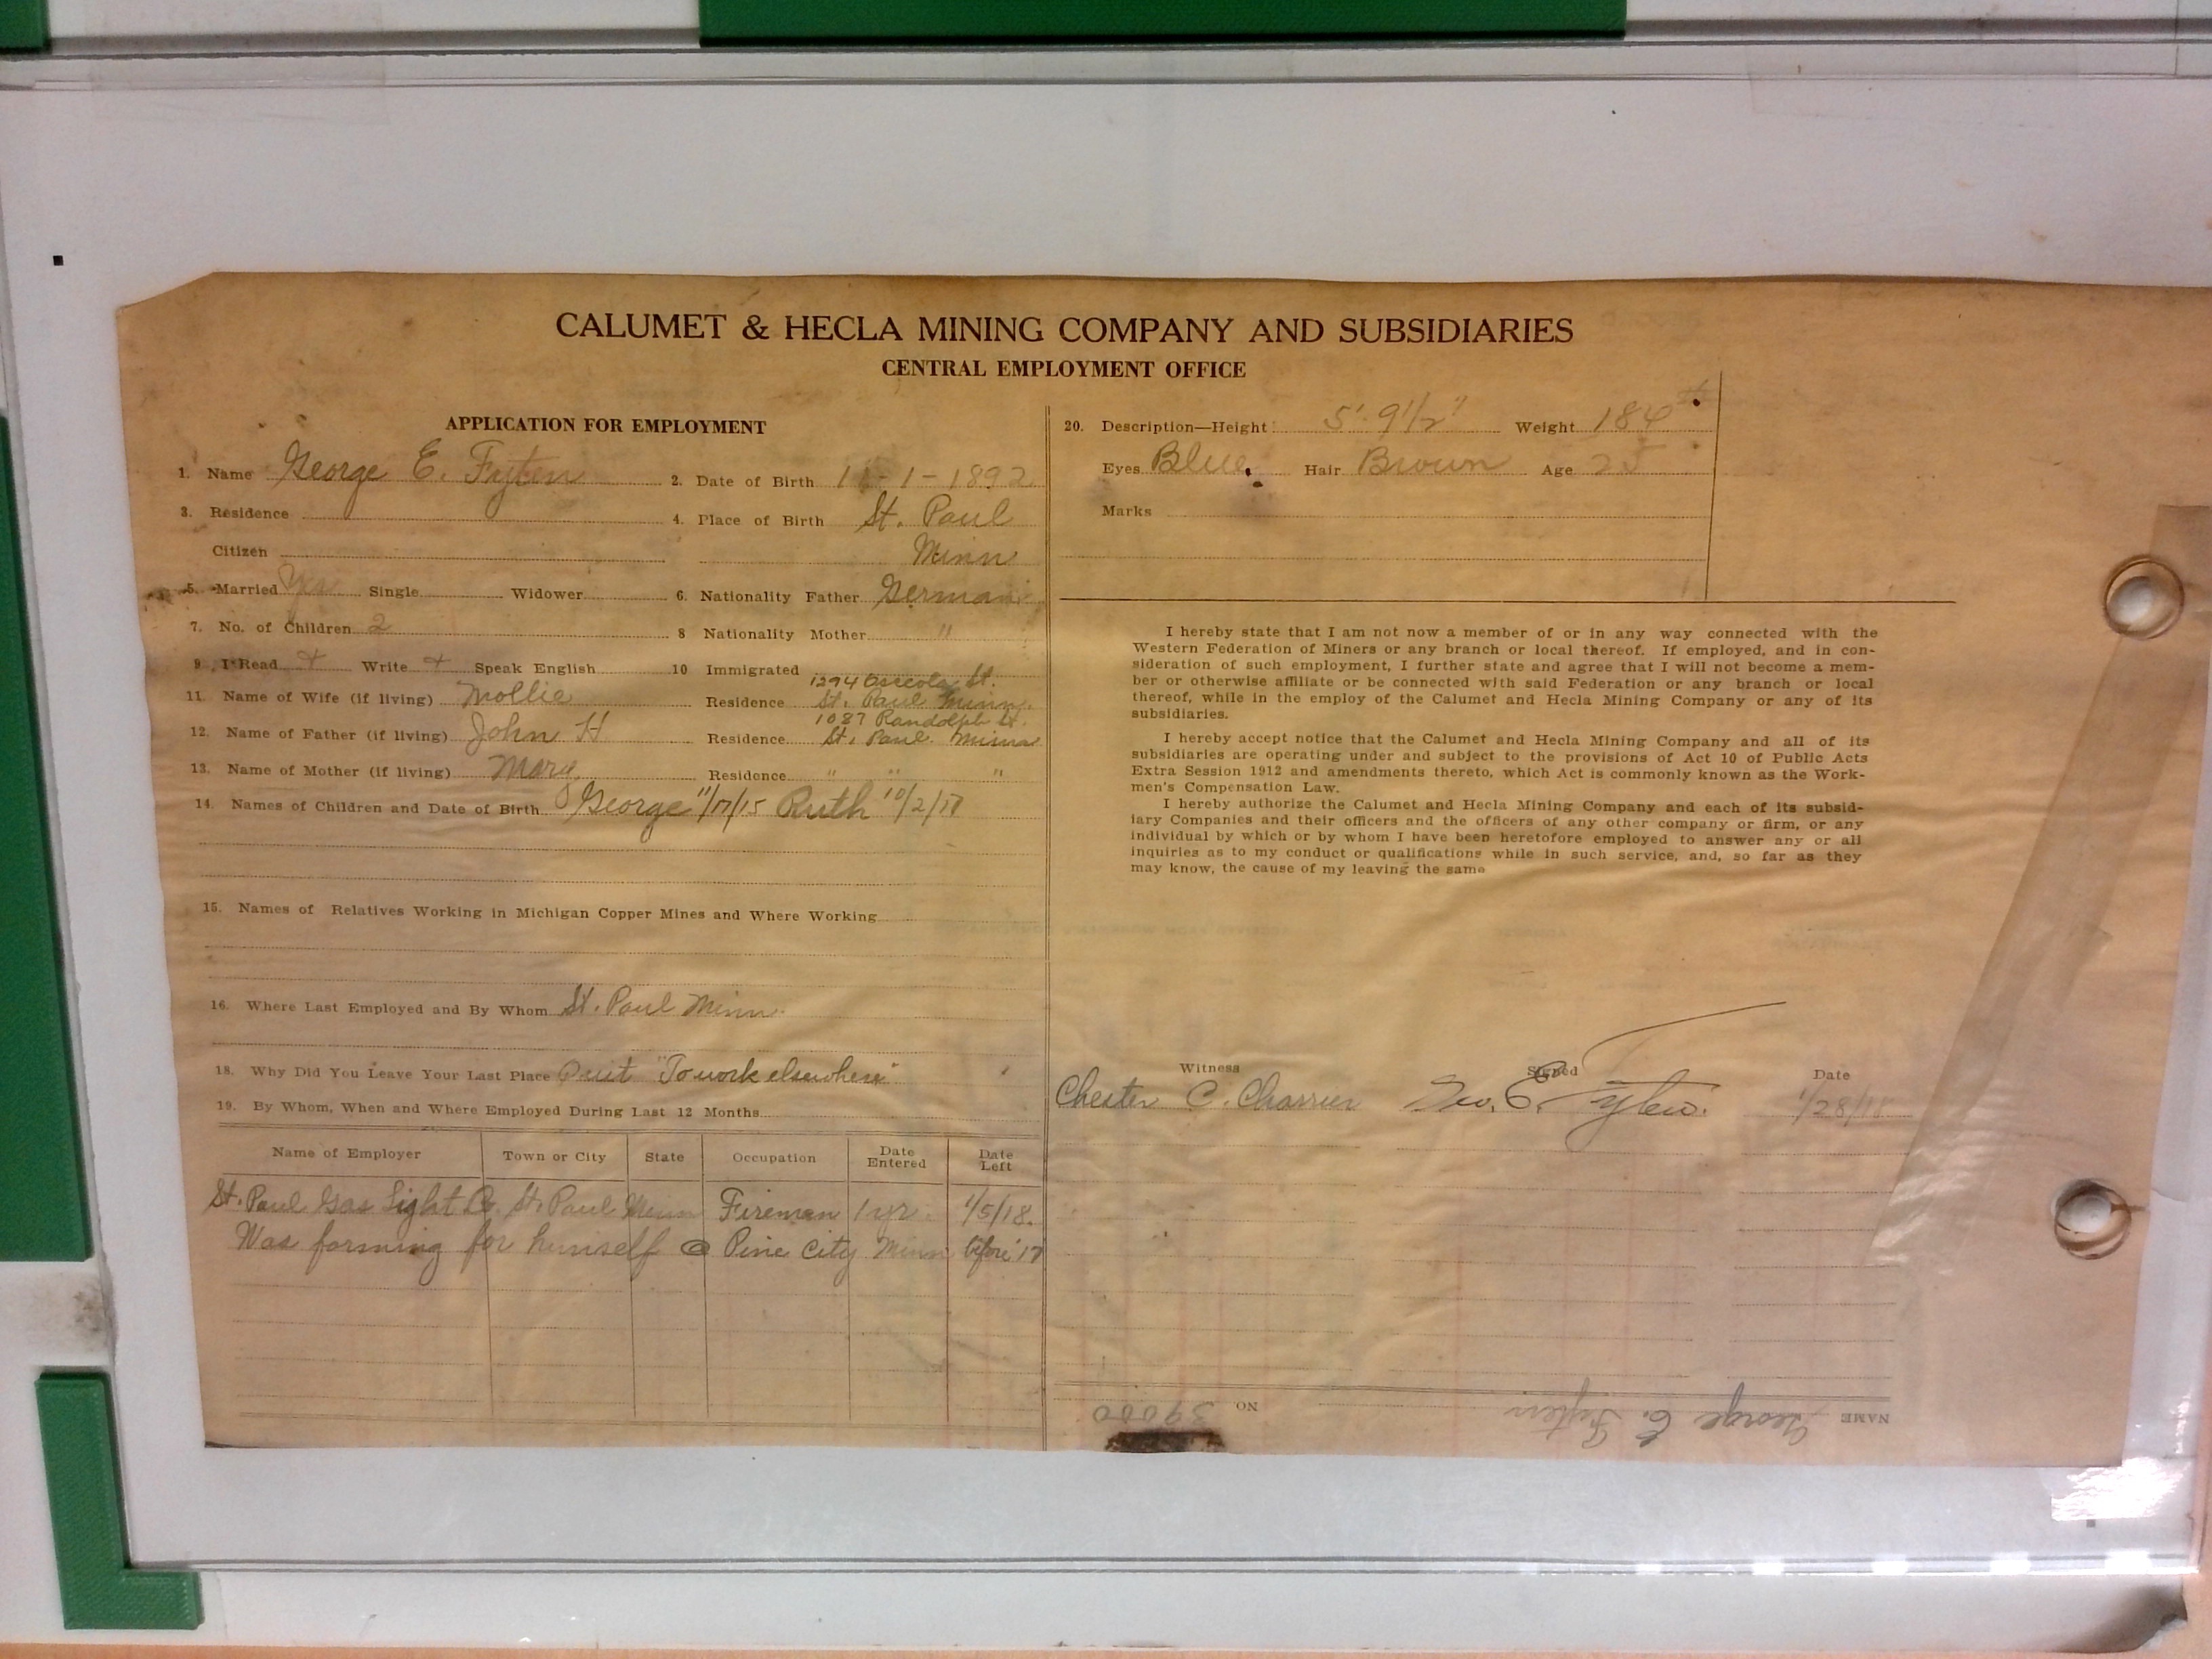 CALUMET & HECLA MINING COMPANY AND SUBSIDIARIES
CENTRAL EMPLOYMENT OFFICE
APPLICATION FOR EMPLOYMENT
1. Name George E. Fyten 2. Date of Birth 11-1-1892
3. Residence 4. Place of Birth St. Paul
Citizen Minn
5. Married Yes Single Widower 6. Nationality Father German
7. No. of Children 2 8 Nationality Mother "
9. I Read + Write + Speak English 10 Immigrated
1294 Osceola St.
11. Name of Wife (if living) Mollie Residence St. Paul Minn.
1087 Randolph St.
12. Name of Father (if living) John H Residence St. Paul Minn
13. Name of Mother (if living) Mary Residence " " "
14. Names of Children and Date of Birth George 11/17/15 Ruth 10/2/17
15. Names of Relatives Working in Michigan Copper Mines and Where Working
16. Where Last Employed and By Whom St. Paul Minn.
18. Why Did You Leave Your Last Place Quit "To work elsewhere"
19. By Whom, When and Where Employed During Last 12 Months
Name of Employer Town or City State Occupation Date Entered Date Left
St. Paul Gas Light Co. St. Paul Minn Fireman 1 yr. 1/5/18.
Was farming for himself @ Pine City Minn before '17
20. Description—Height 5'. 9 1/2" Weight 184 #
Eyes Blue Hair Brown Age 25
Marks
I hereby state that I am not now a member of or in any way connected with the
Western Federation of Miners or any branch or local thereof. If employed, and in con-
sideration of such employment, I further state and agree that I will not become a mem-
ber or otherwise affiliate or be connected with said Federation or any branch or local
thereof, while in the employ of the Calumet and Hecla Mining Company or any of its
subsidiaries.
I hereby accept notice that the Calumet and Hecla Mining Company and all of its
subsidiaries are operating under and subject to the provisions of Act 10 of Public Acts
Extra Session 1912 and amendments thereto, which Act is commonly known as the Work-
men's Compensation Law.
I hereby authorize the Calumet and Hecla Mining Company and each of its subsid-
iary Companies and their officers and the officers of any other company or firm, or any
individual by which or by whom I have been heretofore employed to answer any or all
inquiries as to my conduct or qualifications while in such service, and, so far as they
may know, the cause of my leaving the same
Witness Signed Date
Chester C. Charrier Geo. E. Fyten. 1/28/18
NAME George E. Fyten NO. 39000